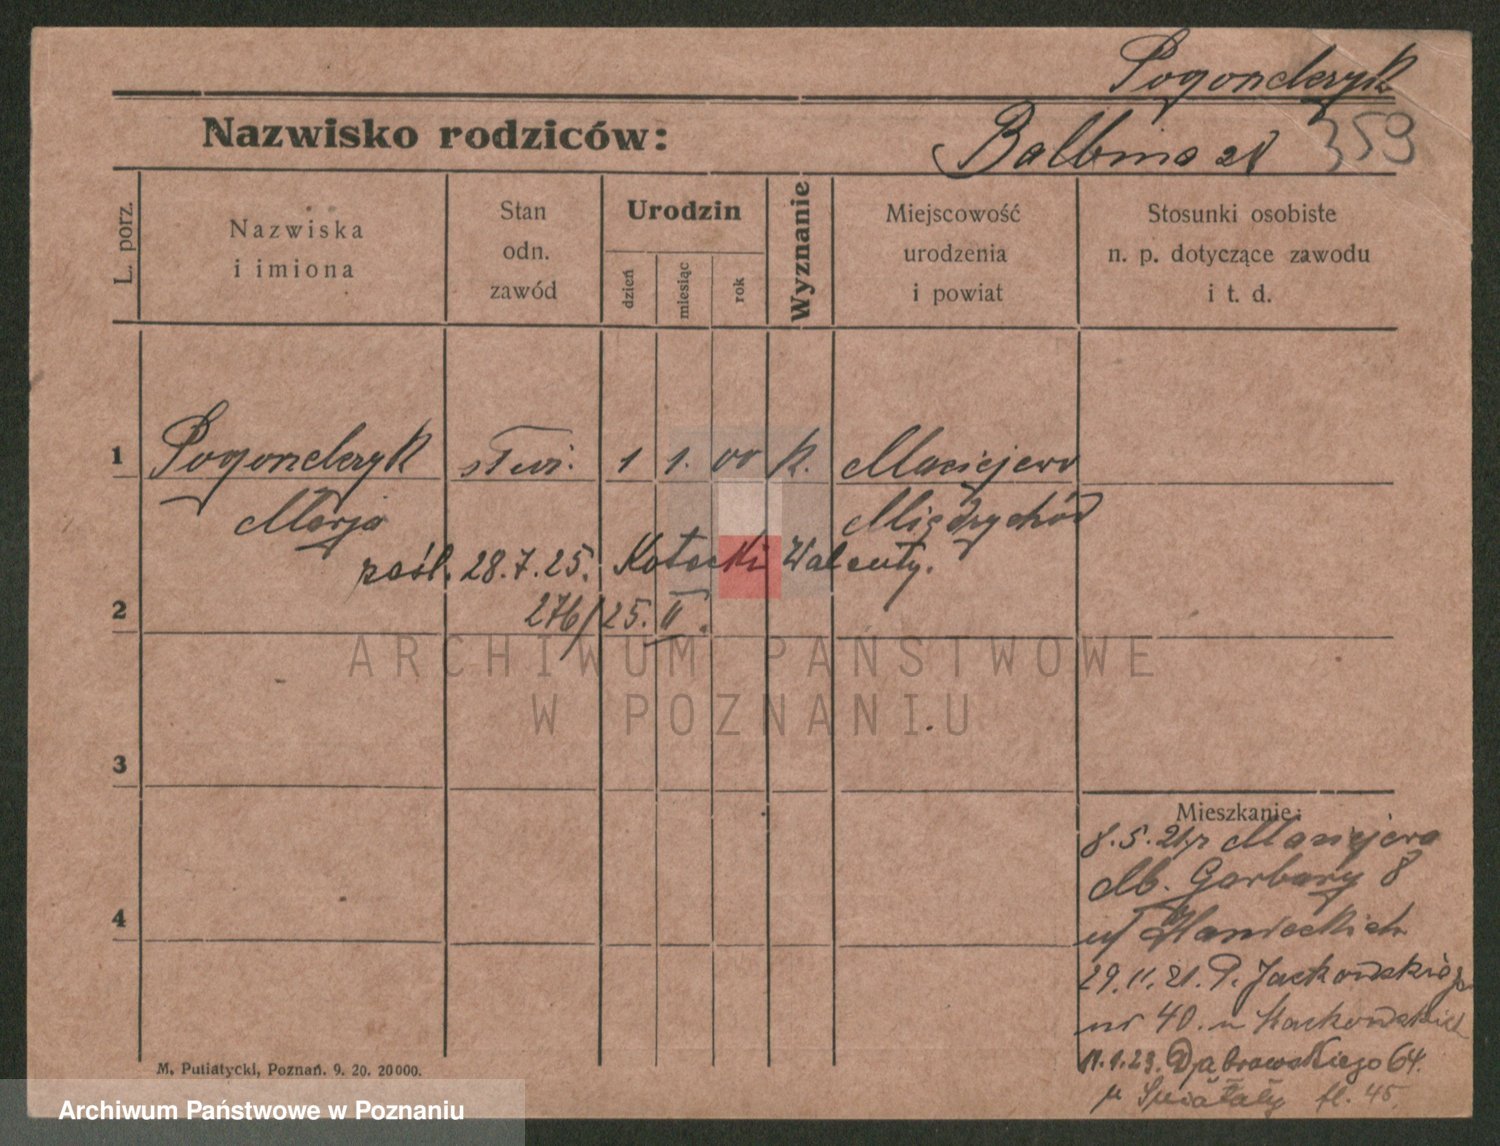 Pogonczyk
Nazwisko rodziców:
Balbina
359
L. porz.
Nazwiska
i imiona
Stan
odn.
zawód
Urodzin
dzień
miesiąc
rok
Wyznanie
Miejscowość
urodzenia
i powiat
Stosunki osobiste
n. p. dotyczące zawodu
i t. d.
1 Pogonczyk 1 1. 00 k. Maciejewo
Marja Międzychód
zaśl. 28.7.25. Kotecki Walenty.
276/25. II.
2
ARCHIWUM PAŃSTWOWE
W POZNANIU
3
4
Mieszkanie:
8.5.21 Maciejewo
Garbary 8
29.11.21. P. Jackowskiego
nr 40. u
11.1.23. Dąbrowskiego 64.
45.
M. Putiatycki, Poznań. 9. 20. 20000.
Archiwum Państwowe w Poznaniu